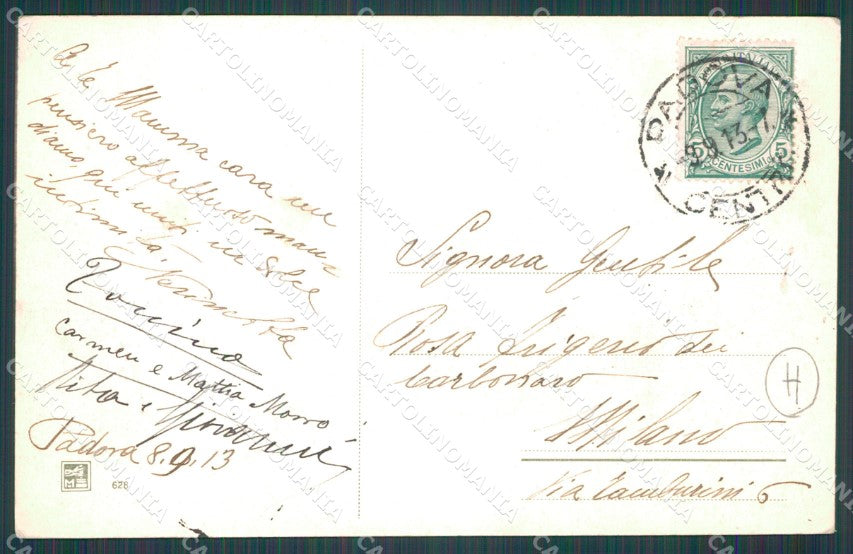 A te Mamma cara un
pensiero affettuoso man
diamo, qui uniti in dolce
intimità.
Carmen e Mattia Morro
Rita e Giovanni
Padova 8.9.13
628
POSTE ITALIANE
CENTESIMI
5
PADOVA
8.9.13-
CENTRO
Signora Gentile
Rosa Frigerio dei
Carbonaro
Milano
Via Tamburini 6
H
CARTOLINOMANIA